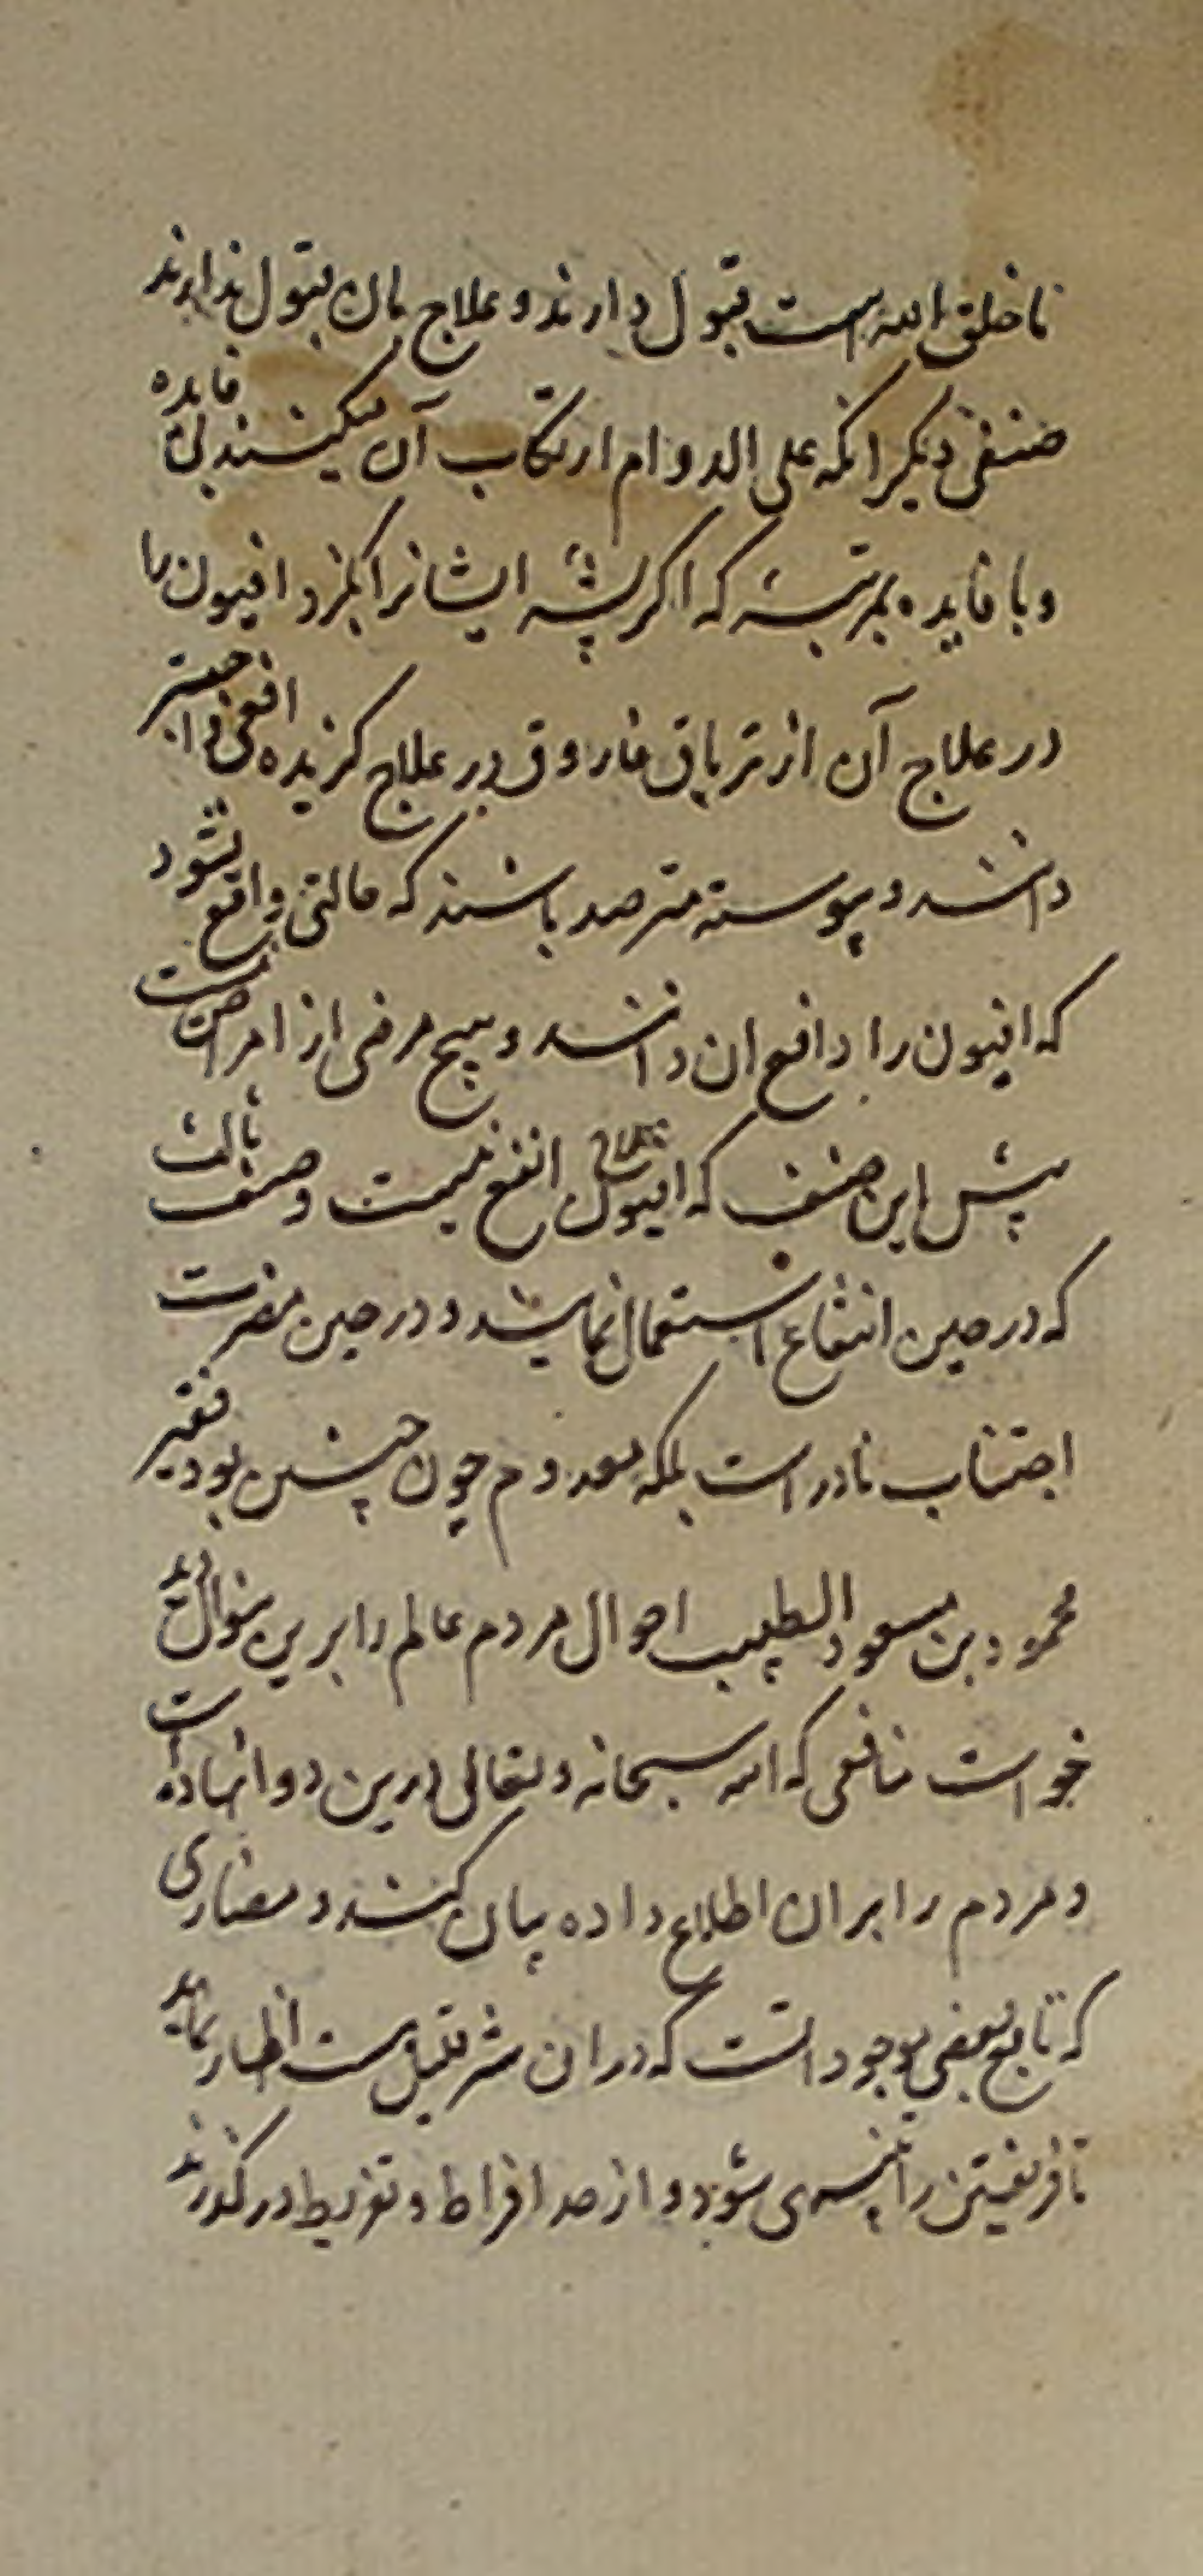 ما خلق الله است قبول دارند و علاج بان بقبول ندارند
صنفی دیکر انکه علی الدوام ارتکاب آن میکنند بی فایده
و با فایده بمرتبه که اکر پشه ایشانرا بکزد افیون را
در علاج آن از تریاق فاروق در علاج کزیده افعی واجبتر
دانند و پیوسته مترصد باشند که حالتی واقع شود
که افیون را دافع ان دانند و هیچ مرضی از امراض نیست
پیش این صنف که افیون انفع نیست و صنف ثالث
که در حین انتفاع استعمال نمایند و در حین مضرت
اجتناب نادر است بلکه معدوم چون چنین بود فقیر
محمود بن مسعود الطبیب احوال مردم عالم را برین منوال دید
خواست منافعی که الله سبحانه و تعالی درین دوا نهاده است
و مردم را بران اطلاع داده بیان کند و مضاری
که تابع بعضی موجوداتست که دران شر قلیل است اظهار نماید
تا فریقین را تنبیهی شود و از حد افراط و تفریط درکذرند